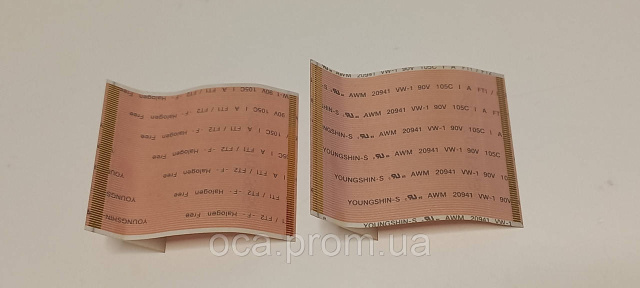 90V 105C I A FTI / FT2
90V 105C I A FTI / FT2 -F- Halogen Free
105C I A FTI / FT2 -F- Halogen Free
I A FTI / FT2 -F- Halogen Free
FTI / FT2 -F- Halogen Free YOUNGS
/ FT2 -F- Halogen Free YOUNGSHIN
AWM 20941 VW-1 90V
-S AWM 20941 VW-1 90V 105C I A FTI /
SHIN-S AWM 20941 VW-1 90V 105C I A
NGSHIN-S AWM 20941 VW-1 90V 105C I
YOUNGSHIN-S AWM 20941 VW-1 90V 105C
YOUNGSHIN-S AWM 20941 VW-1 90V
YOUNGSHIN-S AWM 20941 VW-1
oca.prom.ua